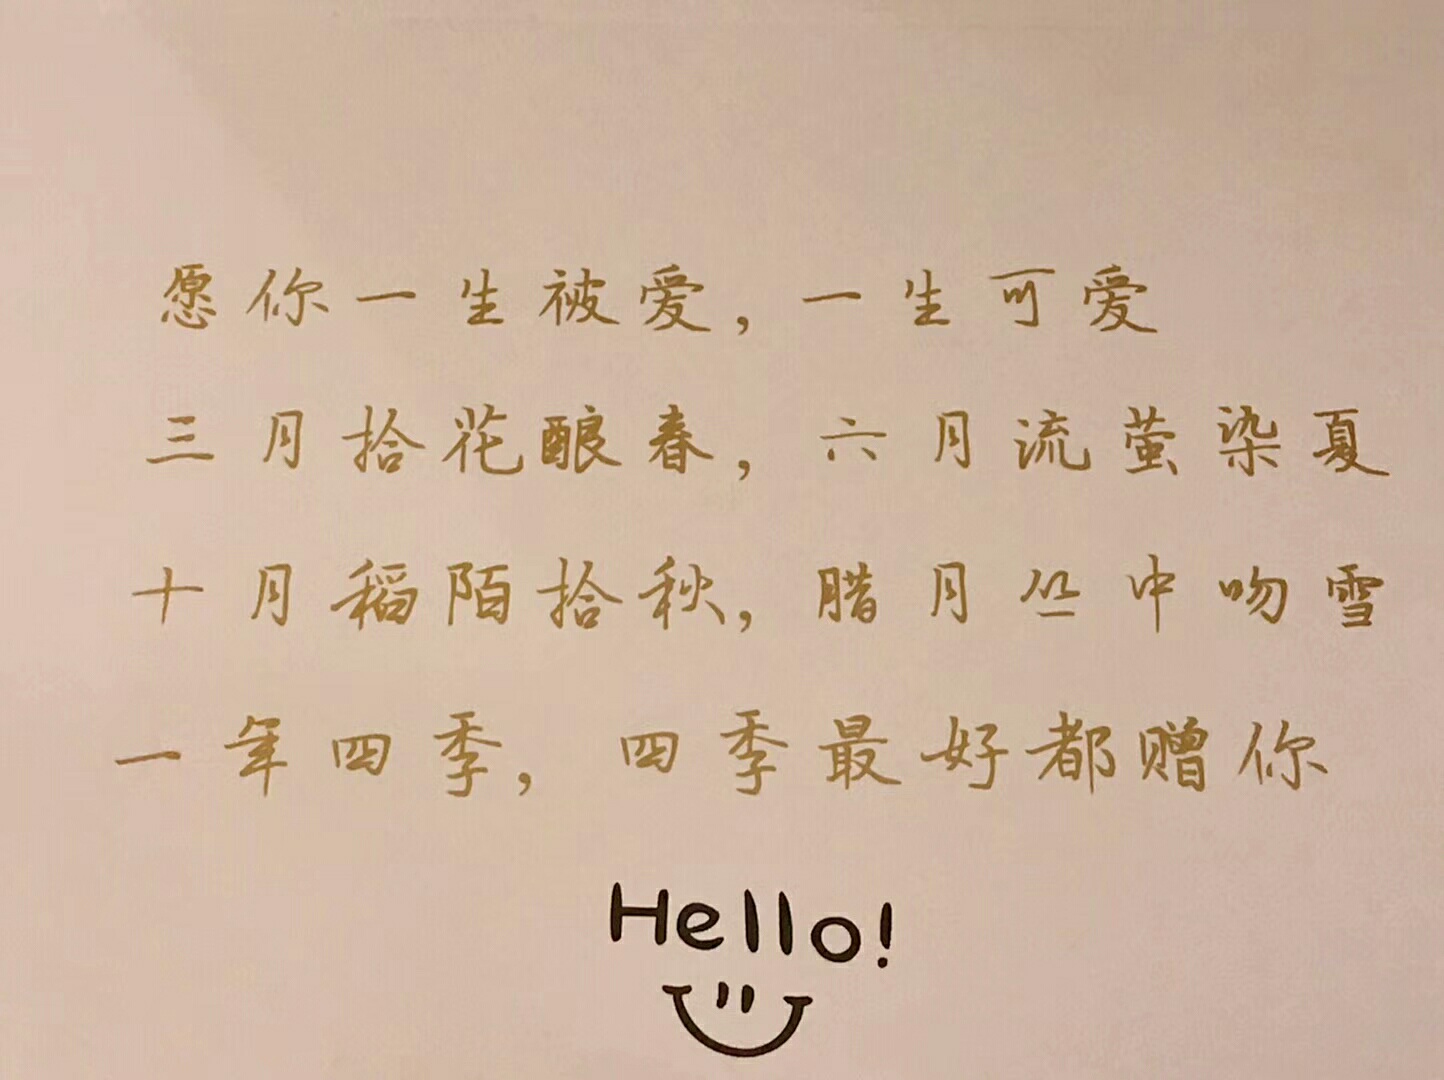 愿你一生被爱，一生可爱
三月拾花酿春，六月流萤染夏
十月稻陌拾秋，腊月丛中吻雪
一年四季，四季最好都赠你
Hello!